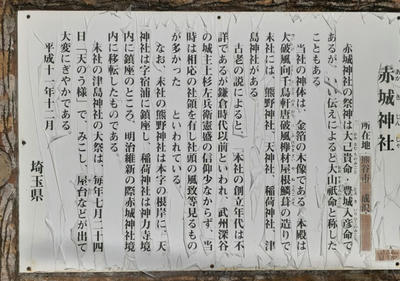 赤城神社
所在地 熊谷市
赤城神社の祭神は大己貴命・豊城入彦命で
あるが、いい伝えによると大山祇命と称した
こともある。
当社の神体は、金箔の木像である。本殿は
大破風向千鳥軒唐破風欅材屋根鱗葺の造りで
末社には、熊野神社、天神社、稲荷神社、津
島神社がある。
古老の説によると、「本社の創立年代は不
詳であるが鎌倉時代以前といわれ、武州深谷
の城主上杉左兵衛憲憲の信仰少なからず、当
時は相応の社領を有し社頭の風致等見るもの
が多かった」といわれている。
なお、末社の熊野神社は本字の根岸に、天
神社は字宿浦に鎮座し、稲荷神社は神力寺境
内に鎮座のところ、明治維新の際赤城神社境
内に移転したものである。
末社の津島神社の大祭は、毎年七月二十四
日「天のう様」で、みこし、屋台などが出て
大変にぎやかである。
平成十一年十二月
埼玉県